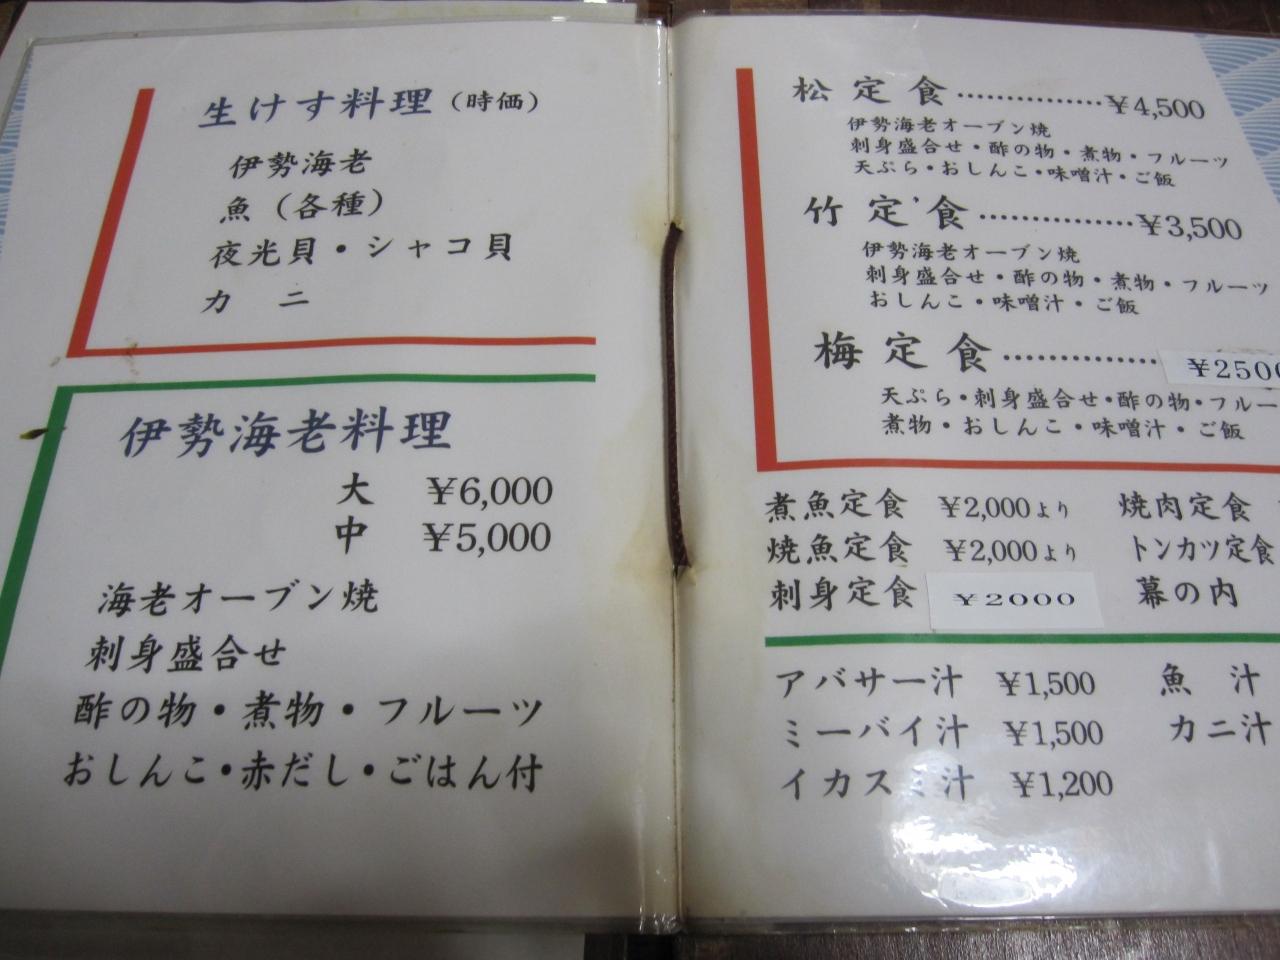 生けす料理(時価)
伊勢海老
魚(各種)
夜光貝・シャコ貝
カニ
伊勢海老料理
大 ¥6,000
中 ¥5,000
海老オーブン焼
刺身盛合せ
酢の物・煮物・フルーツ
おしんこ・赤だし・ごはん付
松定食……………¥4,500
伊勢海老オーブン焼
刺身盛合せ・酢の物・煮物・フルーツ
天ぷら・おしんこ・味噌汁・ご飯
竹定食……………¥3,500
伊勢海老オーブン焼
刺身盛合せ・酢の物・煮物・フルーツ
おしんこ・味噌汁・ご飯
梅定食……………¥2500
天ぷら・刺身盛合せ・酢の物・フルー
煮物・おしんこ・味噌汁・ご飯
煮魚定食 ¥2,000より 焼肉定食
焼魚定食 ¥2,000より トンカツ定食
刺身定食 ¥2000 幕の内
アバサー汁 ¥1,500 魚汁
ミーバイ汁 ¥1,500 カニ汁
イカスミ汁 ¥1,200